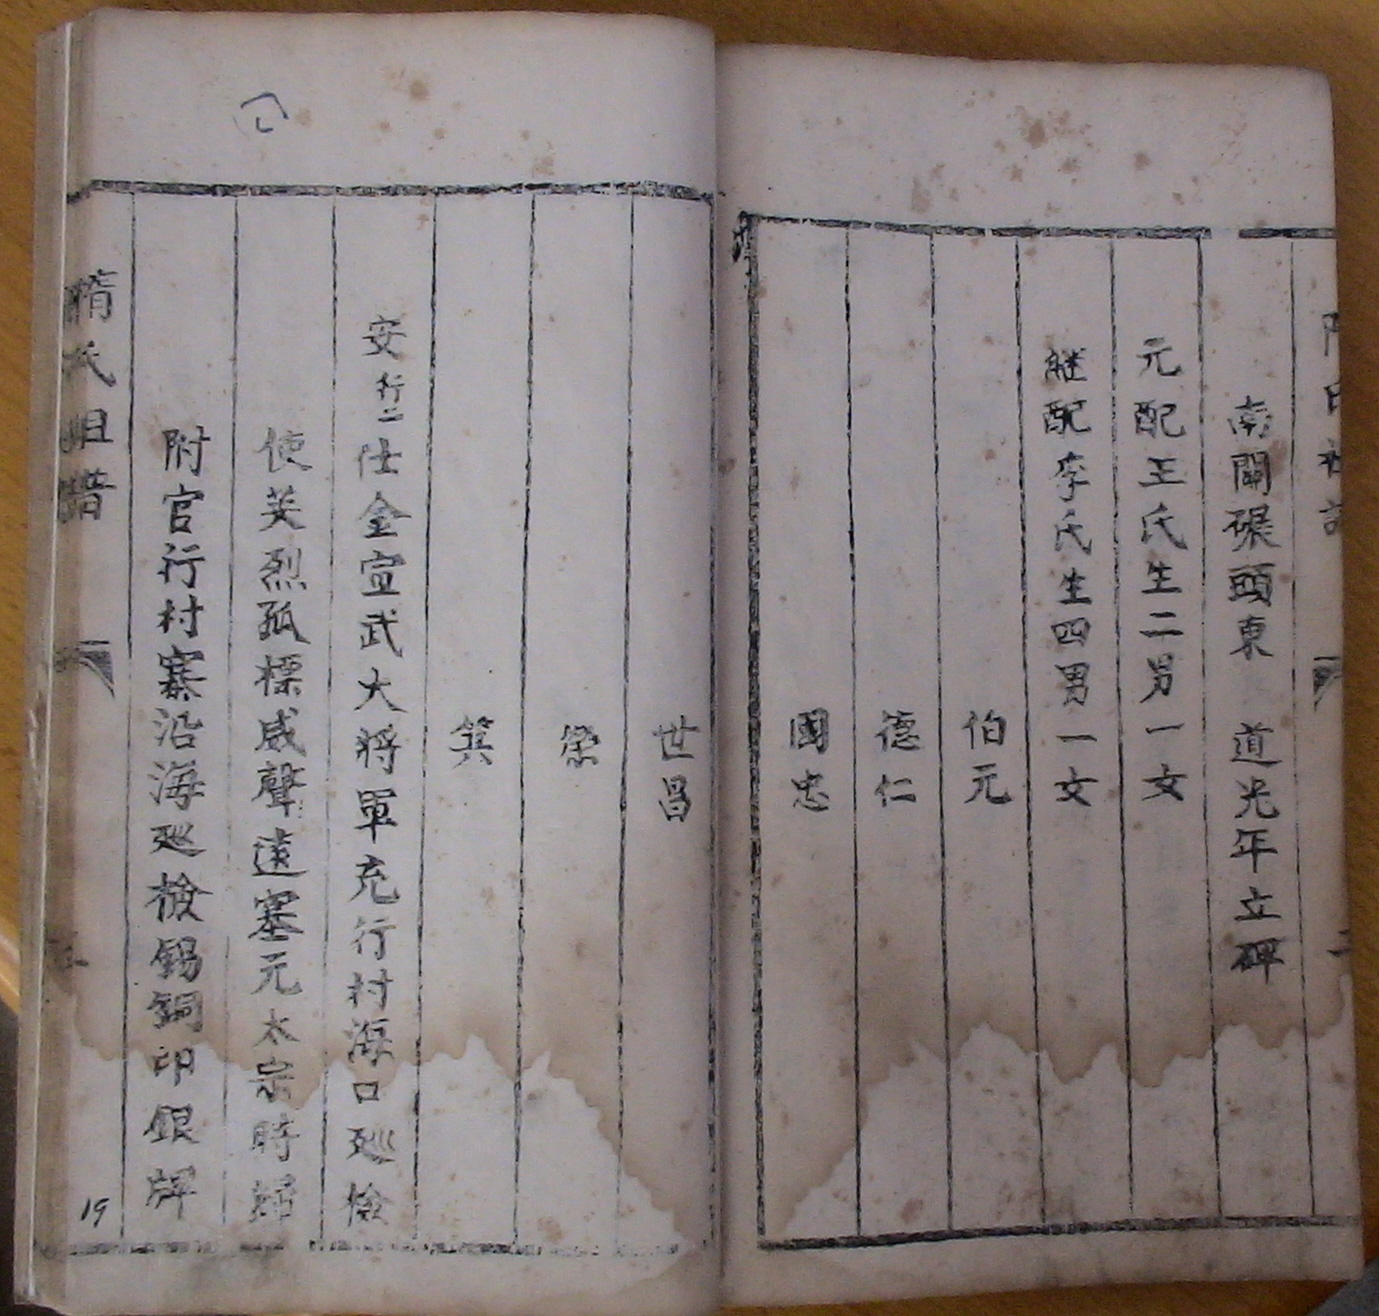 南關碾頭東　道光年立碑
元配王氏生二男一女
繼配李氏生四男一女
伯元
德仁
國忠
世昌
榮
箕
安行二仕金宣武大將軍充行村海口廵檢
使英烈孤標威聲遠塞元太宗時歸
附官行村寨沿海廵檢錫銅印銀牌
隋氏祖譜
19